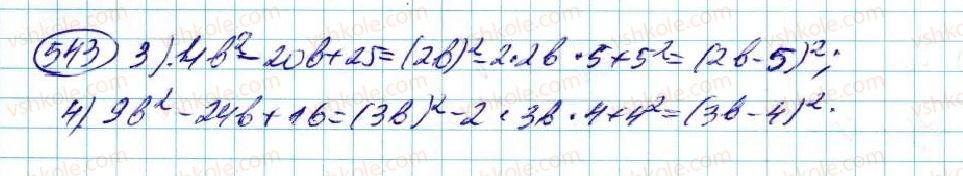 543 3) 4b² - 20b + 25 = (2b)² - 2 · 2b · 5 + 5² = (2b - 5)²;
4) 9b² - 24b + 16 = (3b)² - 2 · 3b · 4 + 4² = (3b - 4)².